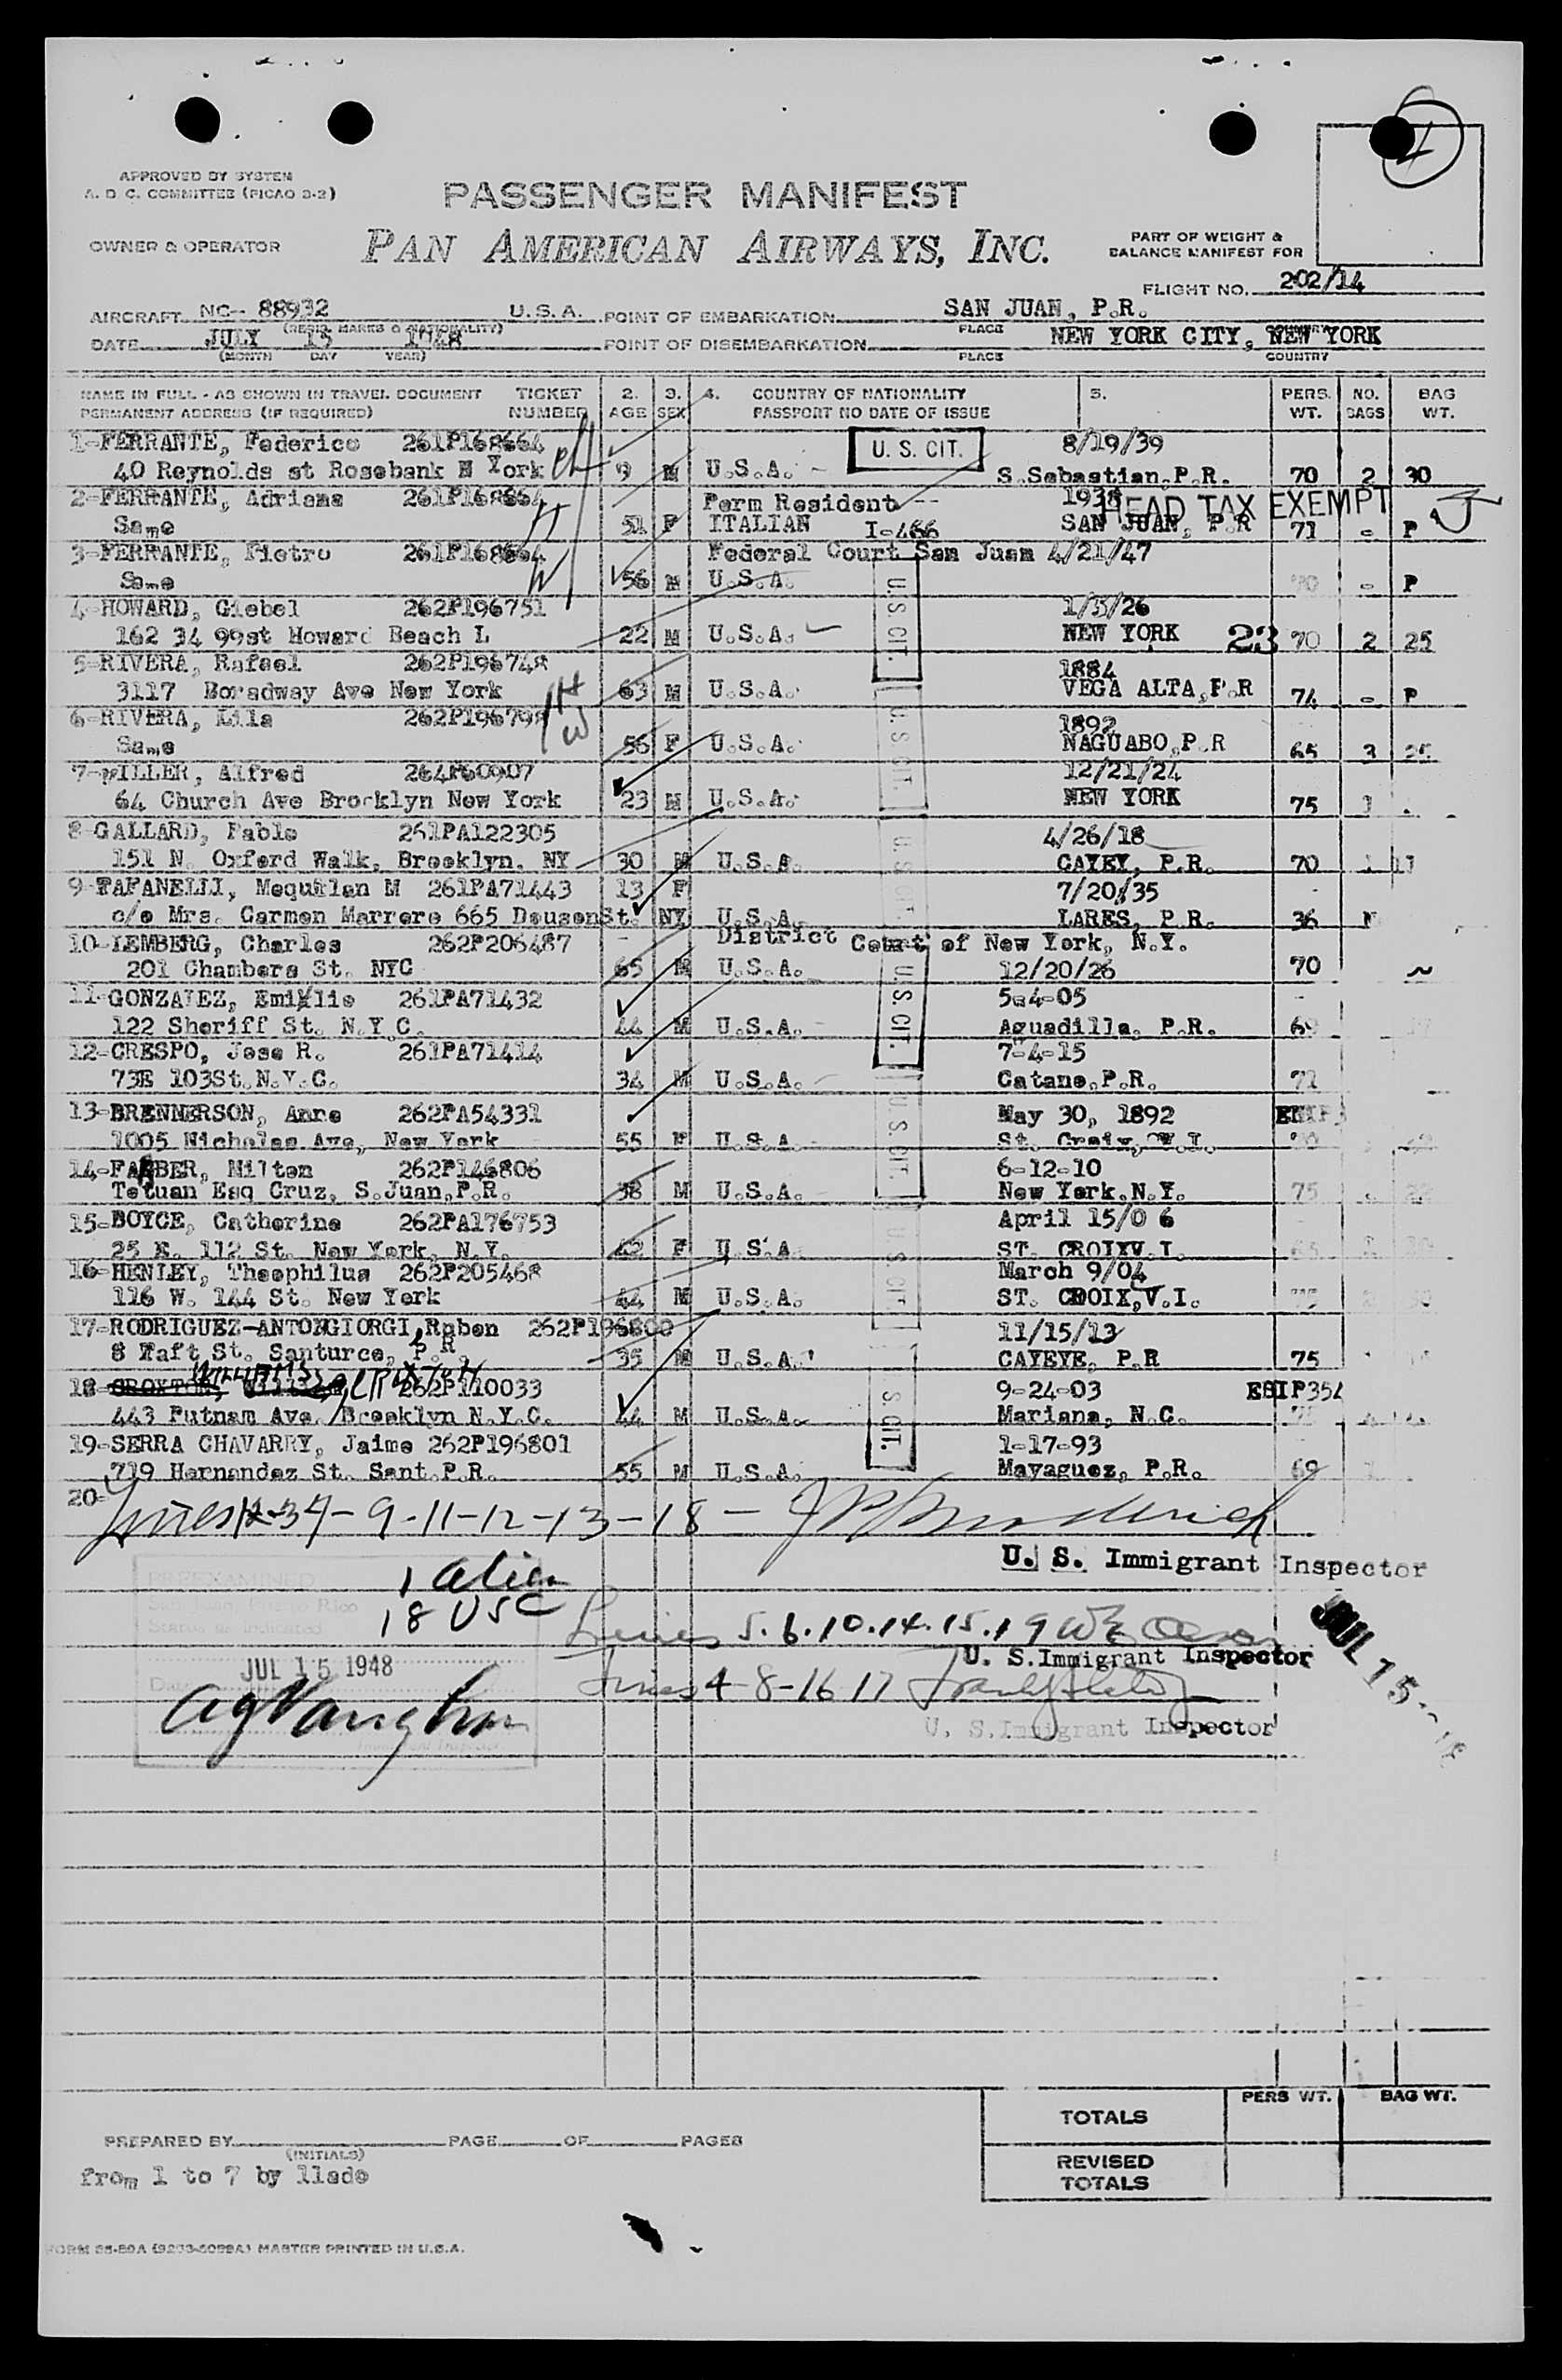 4
APPROVED BY SYSTEM
A. D. C. COMMITTEE (PICAO 3-2)
PASSENGER MANIFEST
OWNER & OPERATOR
PAN AMERICAN AIRWAYS, INC.
PART OF WEIGHT &
BALANCE MANIFEST FOR
FLIGHT NO. 202/14
AIRCRAFT NC-- 88932 U.S.A. POINT OF EMBARKATION SAN JUAN, P.R.
(REGIS. MARKS & NATIONALITY) PLACE COUNTRY
DATE JULY 15 1948 POINT OF DISEMBARKATION NEW YORK CITY, NEW YORK
(MONTH DAY YEAR) PLACE COUNTRY
NAME IN FULL - AS SHOWN IN TRAVEL DOCUMENT TICKET 2. 3. 4. COUNTRY OF NATIONALITY 5. PERS. NO. BAG
PERMANENT ADDRESS (IF REQUIRED) NUMBER AGE SEX PASSPORT NO DATE OF ISSUE WT. BAGS WT.
1-FERRANTE, Federico 261P168664 U. S. CIT. 8/19/39
40 Reynolds st Rosebank N York ch 9 M U.S.A. S.Sebastian,P.R. 70 2 30
2-FERRANTE, Adriana 261P168664 Perm Resident -- 1938 HEAD TAX EXEMPT
Same 51 F ITALIAN I-466 SAN JUAN, P.R 71 - P
3-FERRANTE, Pietro 261P168664 Federal Court San Juan 4/21/47
Same 56 M U.S.A. 70 - P
4-HOWARD, Giebel 262P196751 1/3/26
162 34 99st Howard Beach L 22 M U.S.A. NEW YORK 23 70 2 25
5-RIVERA, Rafael 262P196748 1884
3117 Boradway Ave New York 63 M U.S.A. VEGA ALTA,P.R 74 - P
6-RIVERA, Lila 262P196798 1892
Same 56 F U.S.A. NAGUABO,P.R 65 3 25
7-MILLER, Alfred 264P60907 12/21/24
64 Church Ave Brocklyn New York 23 M U.S.A. NEW YORK 75 1
8-GALLARD, Pablo 261PA122305 4/26/18
151 N. Oxford Walk, Brooklyn. NY 30 M U.S.A. CAYEY, P.R. 70
9-TAPANELLI, M 261PA71443 13 F 7/20/35
c/o Mrs. Carmen Marrero 665 DousonSt. NY U.S.A. LARES, P.R. 36
10-LEMBERG, Charles 262P206487 District Court of New York, N.Y.
201 Chambers St. NYC 65 M U.S.A. 12/20/26 70
11-GONZALEZ, Emilio 261PA71432 5-4-05
122 Sheriff St. N.Y.C. 44 M U.S.A. Aguadilla, P.R. 69
12-CRESPO, Jose R. 261PA71414 7-4-15
73E 103St.N.Y.C. 34 M U.S.A. Catano,P.R. 71
13-BRENNERSON, Anne 262PA54331 May 30, 1892
1005 Nicholas Ave, New York 55 F U.S.A. St. Croix, V.I.
14-FARBER, Milton 262P146806 6-12-10
Tetuan Esq Cruz, S.Juan,P.R. 38 M U.S.A. New York,N.Y. 75 22
15-BOYCE, Catherine 262PA176753 April 15/0 6
25 E. 112 St. New York, N.Y. 42 F U.S.A ST. CROIXV.I. 65
16-HENLEY, Theophilus 262P205468 March 9/04
116 W. 144 St. New York 44 M U.S.A. ST. CROIX,V.I.
17-RODRIGUEZ-ANTONGIORGI,Ruben 262P196800 11/15/13
8 Taft St. Santurce, P.R. 35 M U.S.A. CAYEYE, P.R 75
WILLIAMS, CROXTON
18-CROXTON, 262P110033 9-24-03
443 Putnam Ave. Brooklyn N.Y.C. 44 M U.S.A. Mariana, N.C.
19-SERRA CHAVARRY, Jaime 262P196801 1-17-93
719 Hernandez St. Sant.P.R. 55 M U.S.A. Mayaguez, P.R. 69
20-
Lines 9-11-12-13-18-
U. S. Immigrant Inspector
PREEXAMINED
San Juan, Puerto Rico
Status as indicated
1 alien
18 USC
Lines 5.6.10.14.15.19
U. S.Immigrant Inspector
JUL 15
Date JUL 15 1948
Lines 4-8-16 17
U. S.Immigrant Inspector
Immigrant Inspector
U. S. CIT.
U. S. CIT.
U. S. CIT.
U. S. CIT.
U. S. CIT.
U. S. CIT.
S. CIT.
PERS WT. BAG WT.
TOTALS
PREPARED BY PAGE OF PAGES
(INITIALS)
REVISED
TOTALS
from 1 to 7 by llado
MASTER PRINTED IN U.S.A.